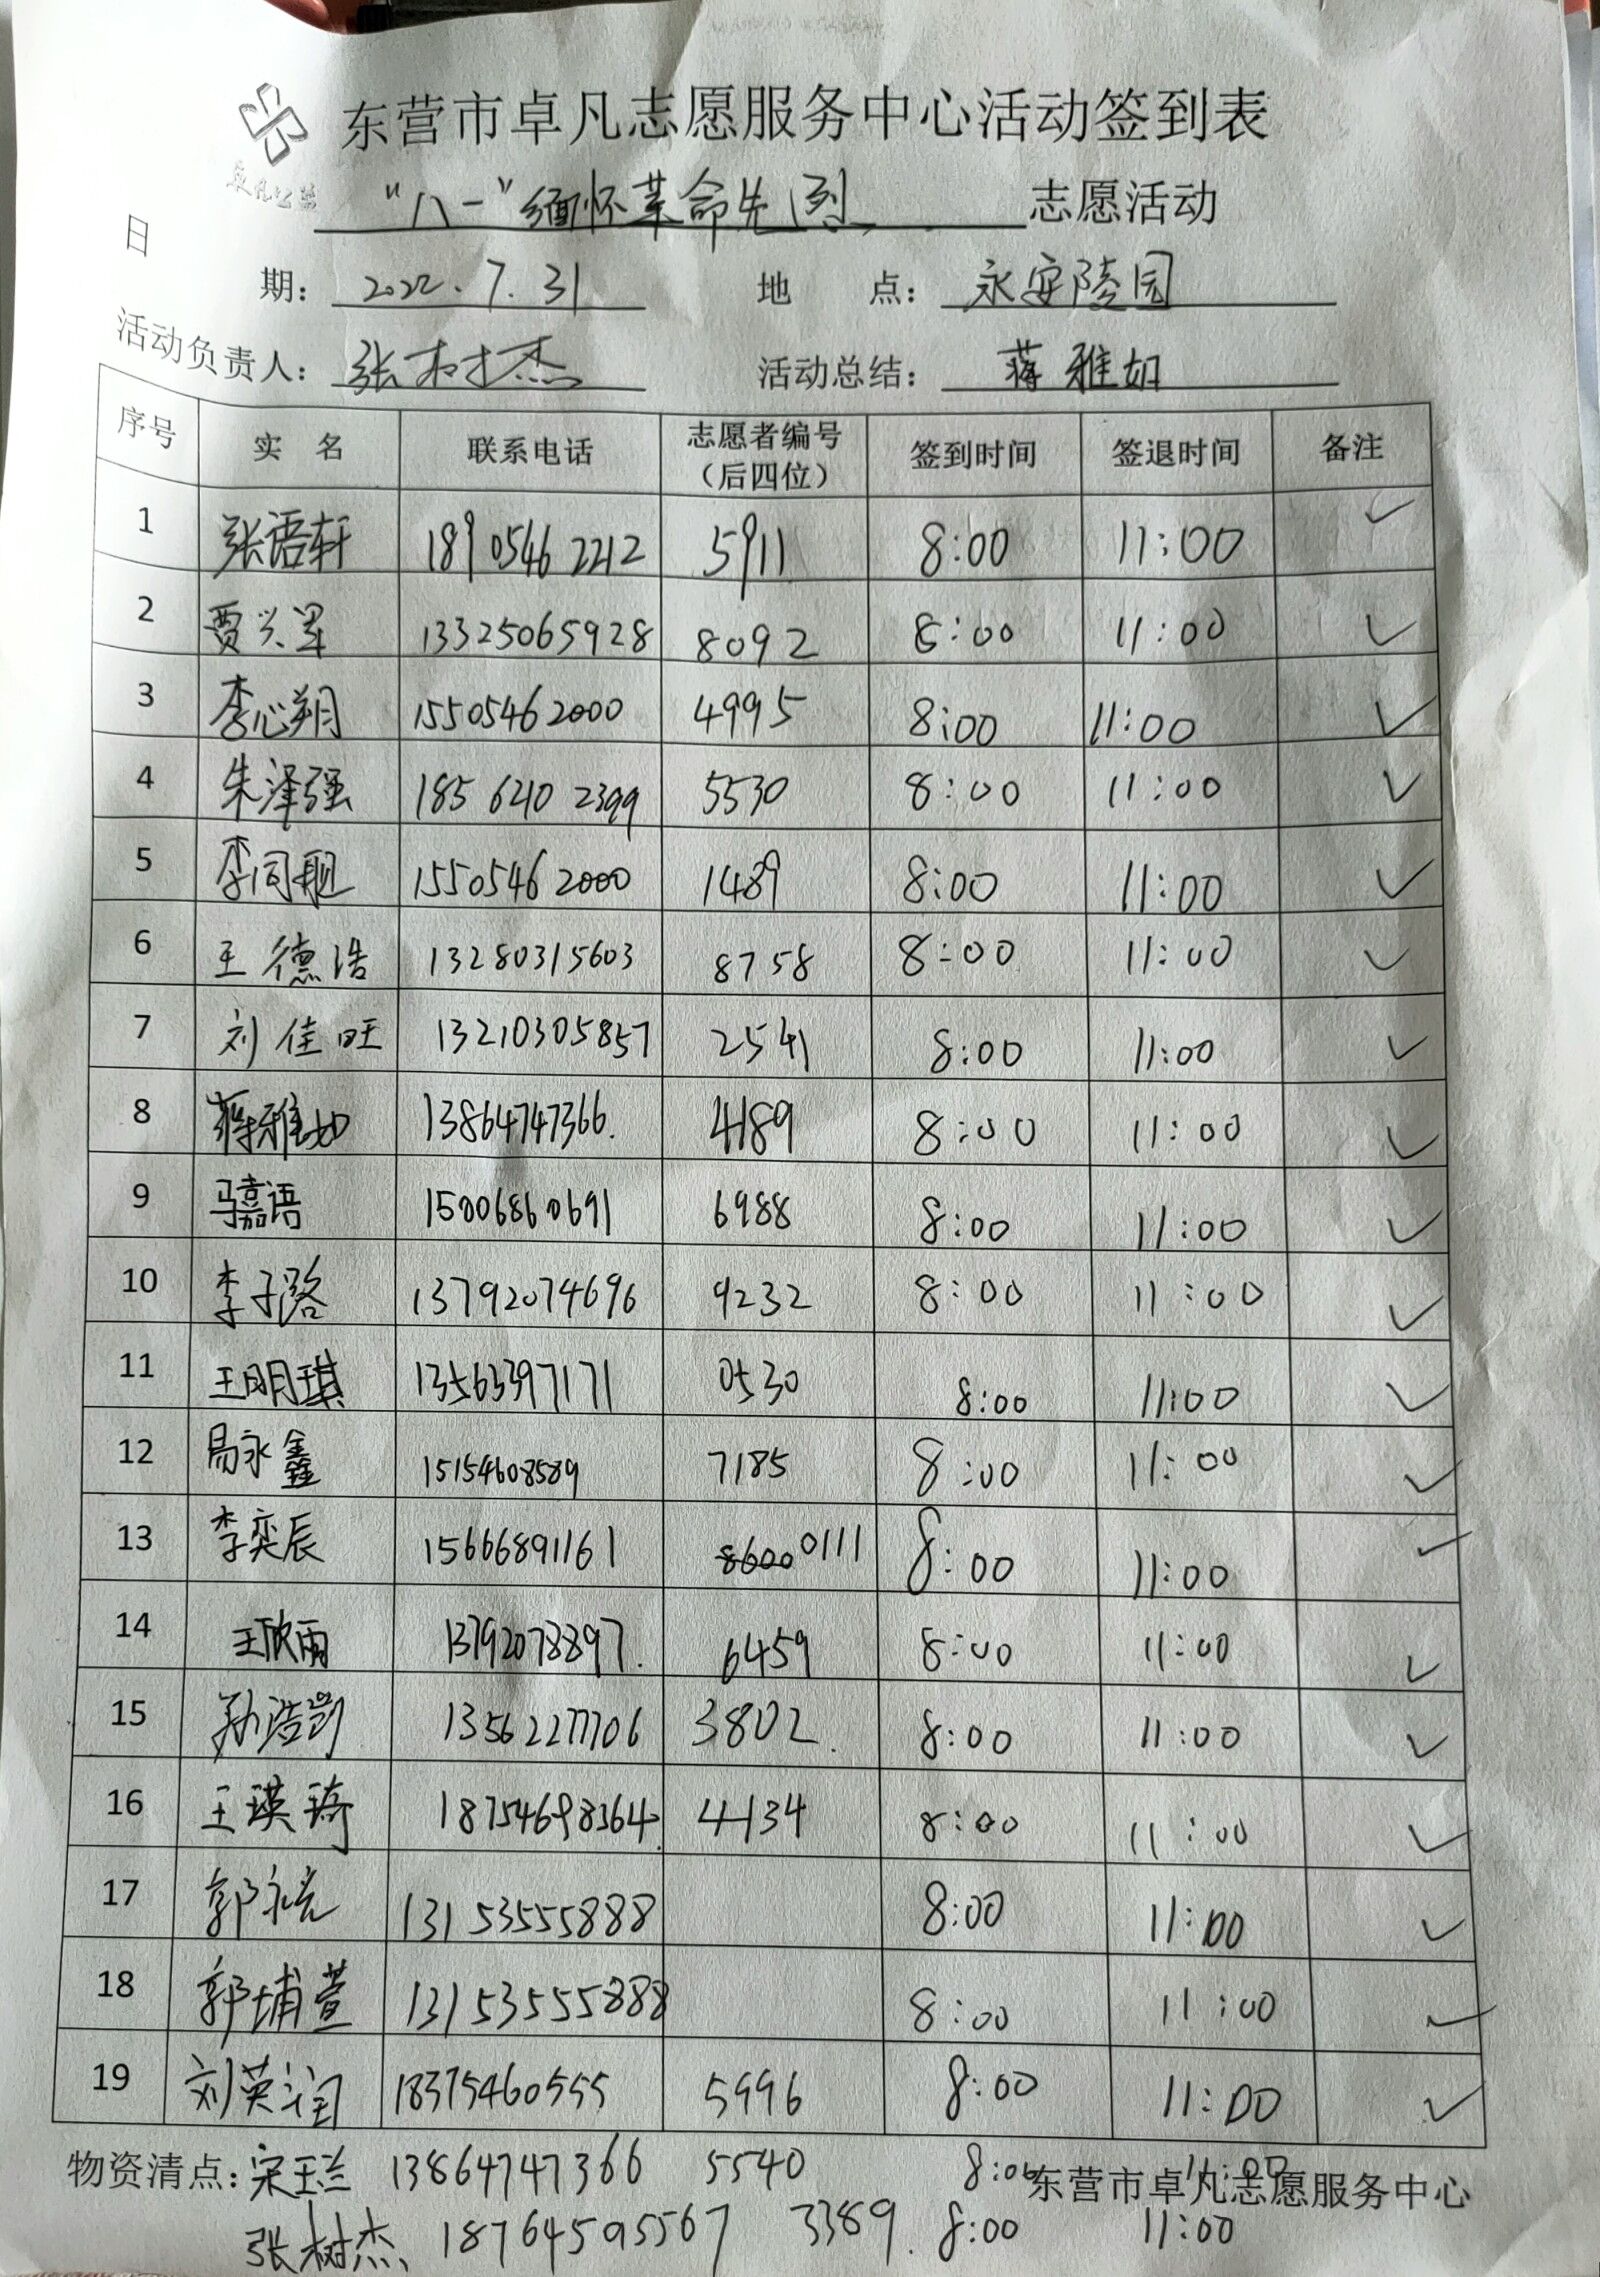 东营市卓凡志愿服务中心活动签到表
卓凡公益
“八一”缅怀革命先烈 志愿活动
日期：2022.7.31 地点：永安陵园
活动负责人：张树杰 活动总结：蒋雅如
序号 实名 联系电话 志愿者编号（后四位） 签到时间 签退时间 备注
1 张语轩 18905462212 5911 8:00 11:00 ✓
2 贾兴军 13325065928 8092 8:00 11:00 ✓
3 李心朔 15505462000 4995 8:00 11:00 ✓
4 朱泽强 18562102399 5530 8:00 11:00 ✓
5 李同舰 15505462000 1489 8:00 11:00 ✓
6 王德浩 13280315603 8758 8:00 11:00 ✓
7 刘佳旺 13210305857 2541 8:00 11:00 ✓
8 蒋雅如 13864747366. 4189 8:00 11:00 ✓
9 马嘉语 15006860691 6988 8:00 11:00 ✓
10 李子路 13792074696 9232 8:00 11:00 ✓
11 王明琪 13563397171 0530 8:00 11:00 ✓
12 易永鑫 15154608589 7185 8:00 11:00 ✓
13 李奕辰 15666891161 8600 0111 8:00 11:00 ✓
14 王欣雨 13792078897. 6459 8:00 11:00 ✓
15 孙浩凯 13562277706 3802. 8:00 11:00 ✓
16 王瑛琦 18754698364 4134 8:00 11:00 ✓
17 郭永亮 13153555888 8:00 11:00 ✓
18 郭埔萱 13153555888 8:00 11:00 ✓
19 刘英润 18375460555 5996 8:00 11:00 ✓
物资清点：宋玉兰 13864747366 5540 8:00 11:00
东营市卓凡志愿服务中心
张树杰 18764595567 3389. 8:00 11:00